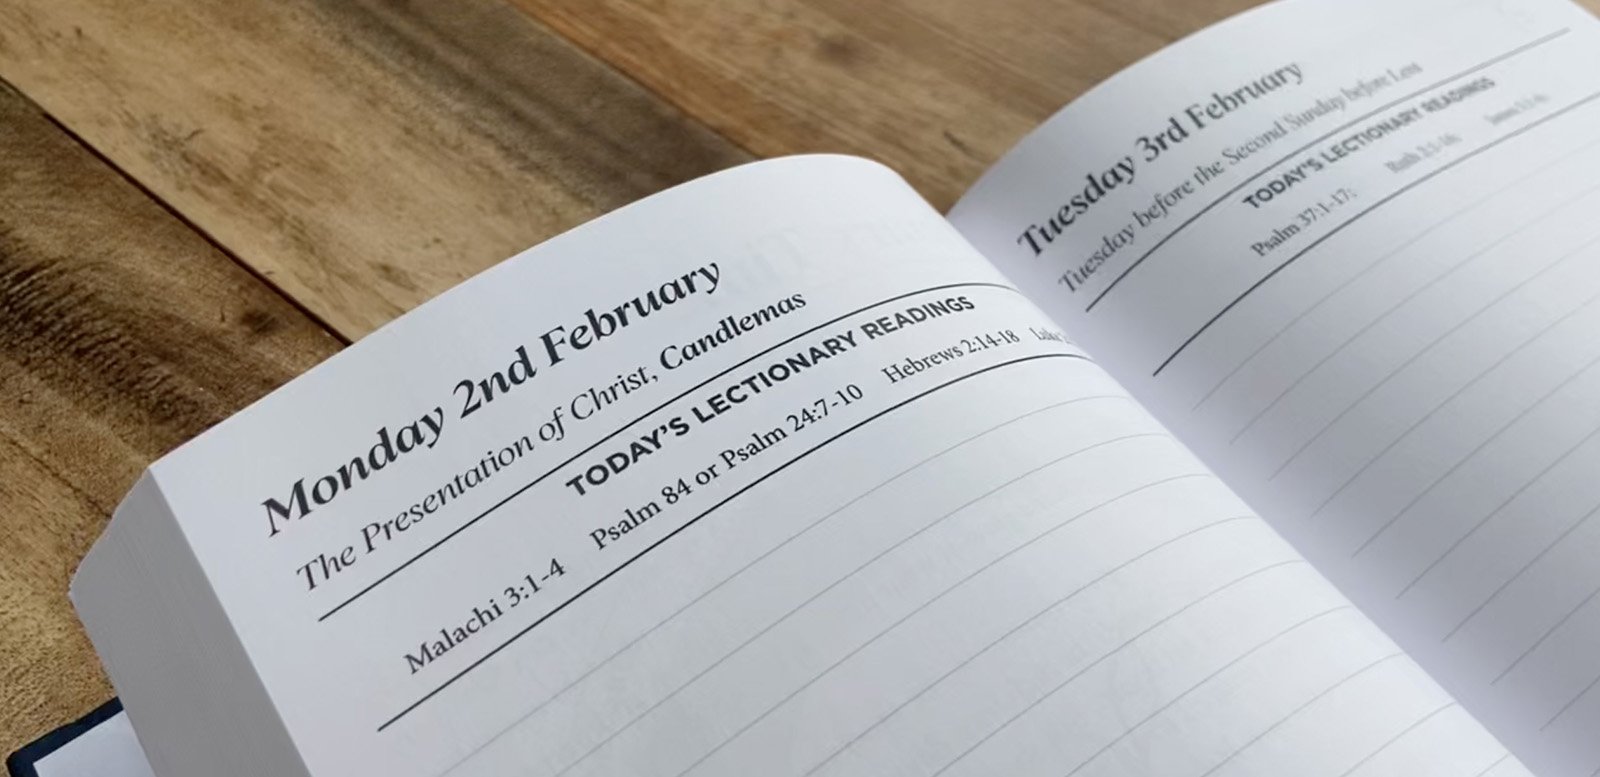 Monday 2nd February
The Presentation of Christ, Candlemas
TODAY'S LECTIONARY READINGS
Malachi 3:1-4 Psalm 84 or Psalm 24:7-10 Hebrews 2:14-18 Luke
Tuesday 3rd February
Tuesday before the Second Sunday before Lent
TODAY'S LECTIONARY READINGS
Psalm 37:1-17;